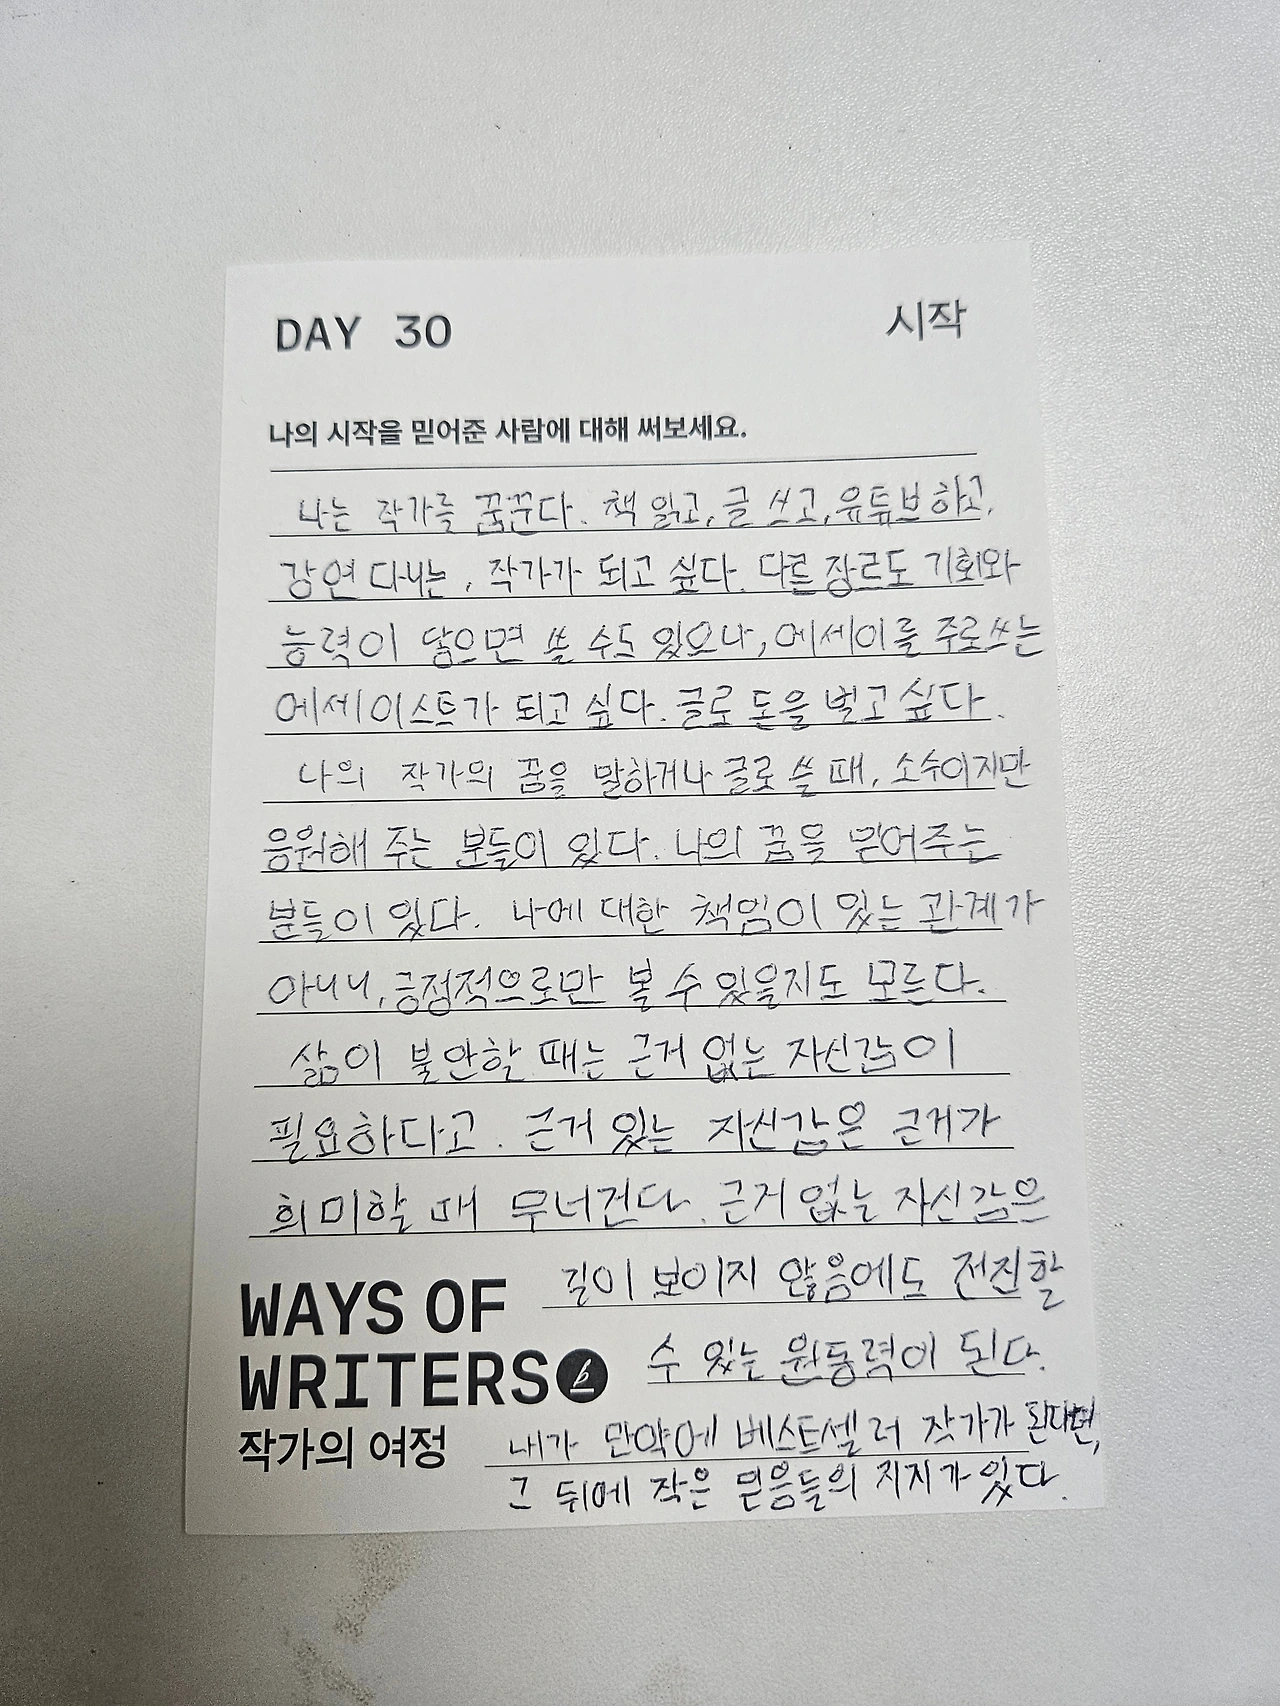 DAY 30
시작
나의 시작을 믿어준 사람에 대해 써보세요.
나는 작가를 꿈꾼다. 책 읽고, 글 쓰고, 유튜브하고,
강연 다니는, 작가가 되고 싶다. 다른 장르도 기회와
능력이 닿으면 쓸 수도 있으나, 에세이를 주로 쓰는
에세이스트가 되고 싶다. 글로 돈을 벌고 싶다.
나의 작가의 꿈을 말하거나 글로 쓸 때, 소수이지만
응원해 주는 분들이 있다. 나의 꿈을 믿어주는
분들이 있다. 나에 대한 책임이 있는 관계가
아니니, 긍정적으로만 볼 수 있을지도 모른다.
삶이 불안할 때는 근거 없는 자신감이
필요하다고. 근거 있는 자신감은 근거가
희미할 때 무너진다. 근거 없는 자신감은
길이 보이지 않음에도 전진할
수 있는 원동력이 된다.
내가 만약에 베스트셀러 작가가 된다면,
그 뒤에 작은 믿음들의 지지가 있다.
WAYS OF
WRITERS
작가의 여정